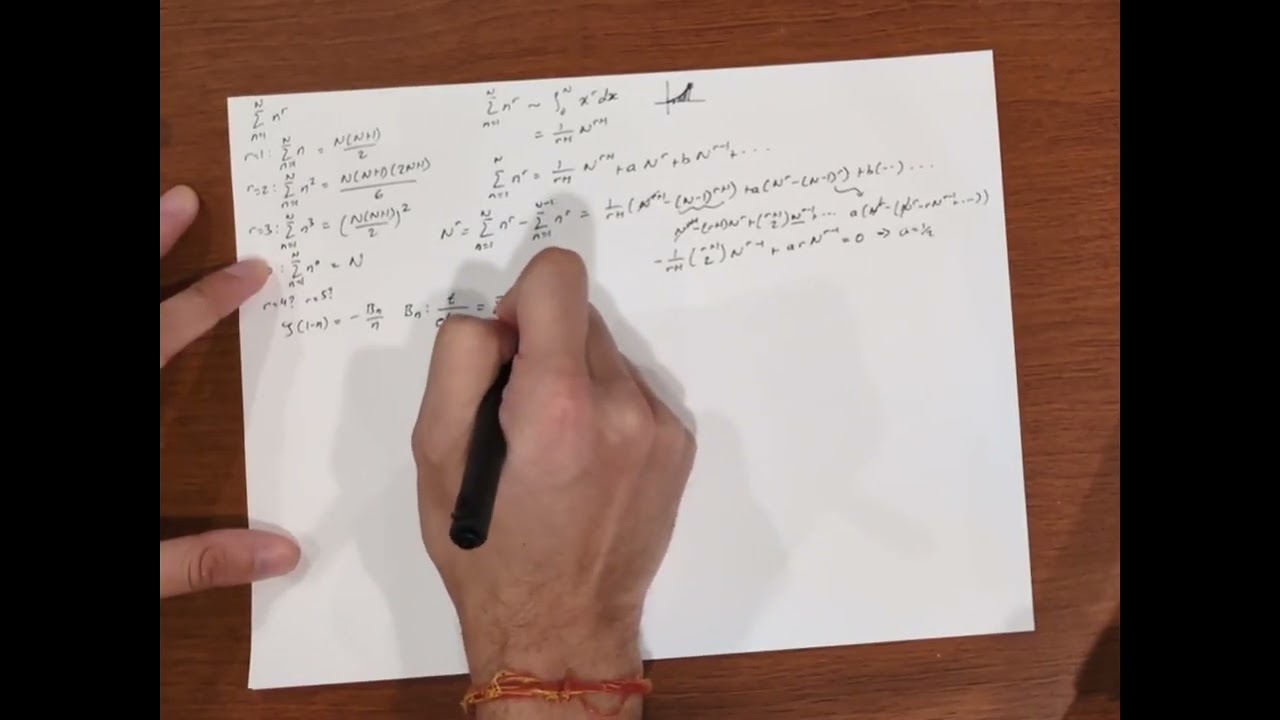 ∑_{n=1}^{N} n^r
r=1: ∑_{n=1}^{N} n = N(N+1)/2
r=2: ∑_{n=1}^{N} n² = N(N+1)(2N+1)/6
r=3: ∑_{n=1}^{N} n³ = (N(N+1)/2)²
: ∑_{n=1}^{N} n⁰ = N
r=4? r=5?
ζ(1-n) = - Bₙ/n   Bₙ: t/ =
∑_{n=1}^{N} n^r ~ ∫_0^N x^r dx
= 1/(r+1) N^{r+1}
∑_{n=1}^{N} n^r = 1/(r+1) N^{r+1} + a N^r + b N^{r-1} + ...
N^r = ∑_{n=1}^{N} n^r - ∑_{n=1}^{N-1} n^r = 1/(r+1) (N^{r+1} - (N-1)^{r+1}) + a(N^r - (N-1)^r) + b(...) ...
N^{r+1} - (r+1)N^r + (r+1 2) N^{r-1} ... a(N^r - (N^r - rN^{r-1} ...))
- 1/(r+1) (r+1 2) N^{r-1} + a r N^{r-1} = 0 ⇒ a = 1/2